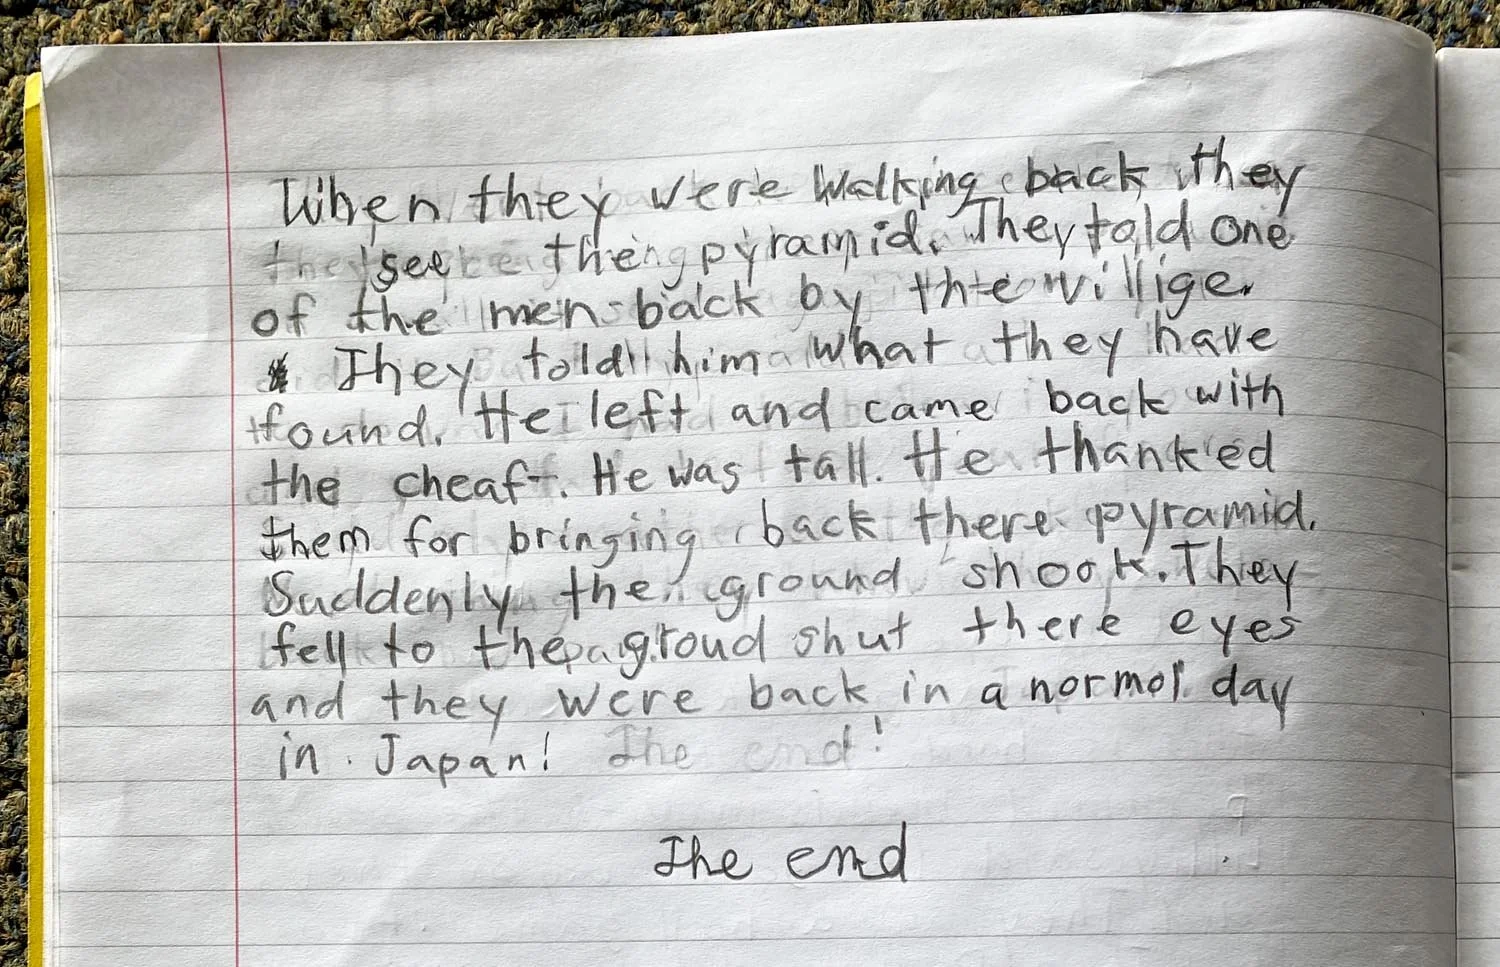 When they were walking back they
see the pyramid. They told one
of the men back by the villige.
They told him what they have
found. He left and came back with
the cheaft. He was tall. He thanked
them for bringing back there pyramid.
Suddenly the ground shook. They
fell to the groud shut there eyes
and they were back in a normol day
in Japan! The end!
The end